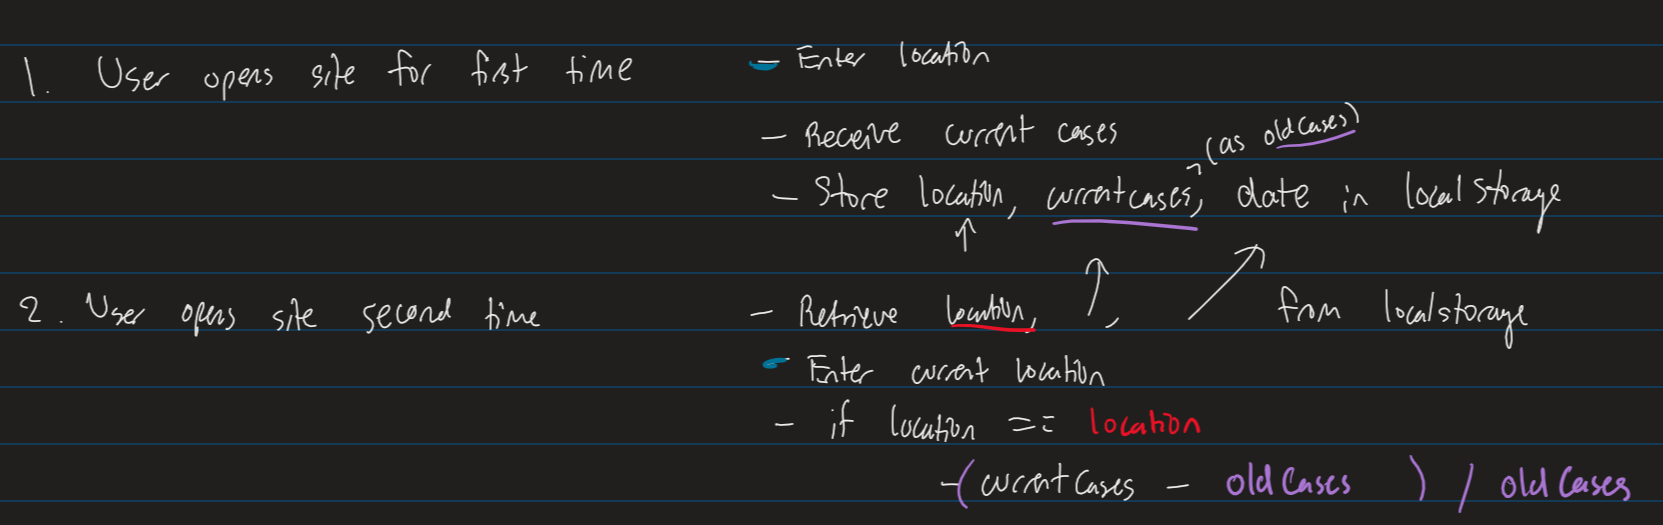 1. User opens site for first time
- Enter location
- Receive current cases
(as oldCases)
- Store location, currentcases, date in localstorage
2. User opens site second time
- Retrieve location, , from localstorage
- Enter current location
- if location == location
- (currentCases - oldCases) / oldCases